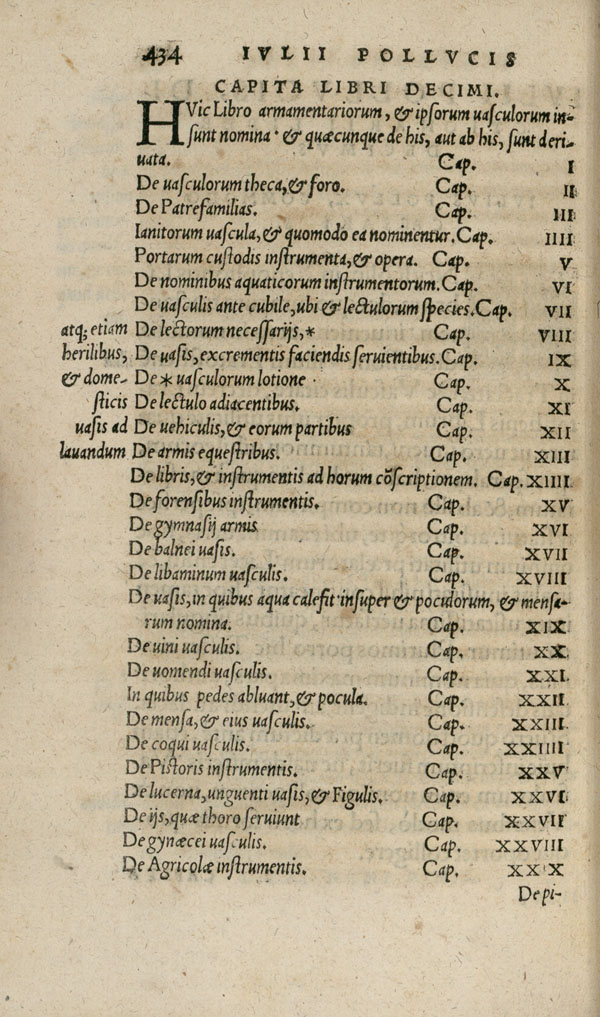 434 IVLII POLLVCIS
CAPITA LIBRI DECIMI.
HVic Libro armamentariorum, & ipsorum uasculorum in-
sunt nomina · & quæcunque de his, aut ab his, sunt deri-
uata. Cap. I
De uasculorum theca, & foro. Cap. II
De Patrefamilias. Cap. III
Ianitorum uascula, & quomodo ea nominentur. Cap. IIII
Portarum custodis instrumenta, & opera. Cap. V
De nominibus aquaticorum instrumentorum. Cap. VI
De uasculis ante cubile, ubi & lectulorum species. Cap. VII
atq; etiam De lectorum necessarijs, * Cap. VIII
herilibus, De uasis, excrementis faciendis seruientibus. Cap. IX
& dome- De * uasculorum lotione · Cap. X
sticis De lectulo adiacentibus. Cap. XI
uasis ad De uehiculis, & eorum partibus Cap. XII
lauandum De armis equestribus. Cap. XIII
De libris, & instrumentis ad horum cõscriptionem. Cap. XIIII
De forensibus instrumentis. Cap. XV
De gymnasij armis Cap. XVI
De balnei uasis. Cap. XVII
De libaminum uasculis. Cap. XVIII
De uasis, in quibus aqua calefit · insuper & poculorum, & mensa-
rum nomina. Cap. XIX
De uini uasculis. Cap. XX
De uomendi uasculis. Cap. XXI
In quibus pedes abluant, & pocula. Cap. XXII
De mensa, & eius uasculis. Cap. XXIII
De coqui uasculis. Cap. XXIIII
De Pistoris instrumentis. Cap. XXV
De lucerna, unguenti uasis, & Figulis. Cap. XXVI
De ijs, quæ thoro seruiunt Cap. XXVII
De gynæcei uasculis. Cap. XXVIII
De Agricolæ instrumentis. Cap. XXIX
De pi-